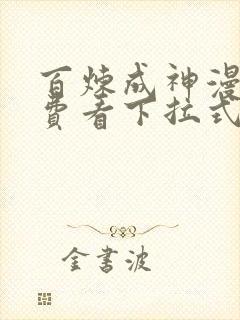 百炼成神漫
费看下拉式
金书波